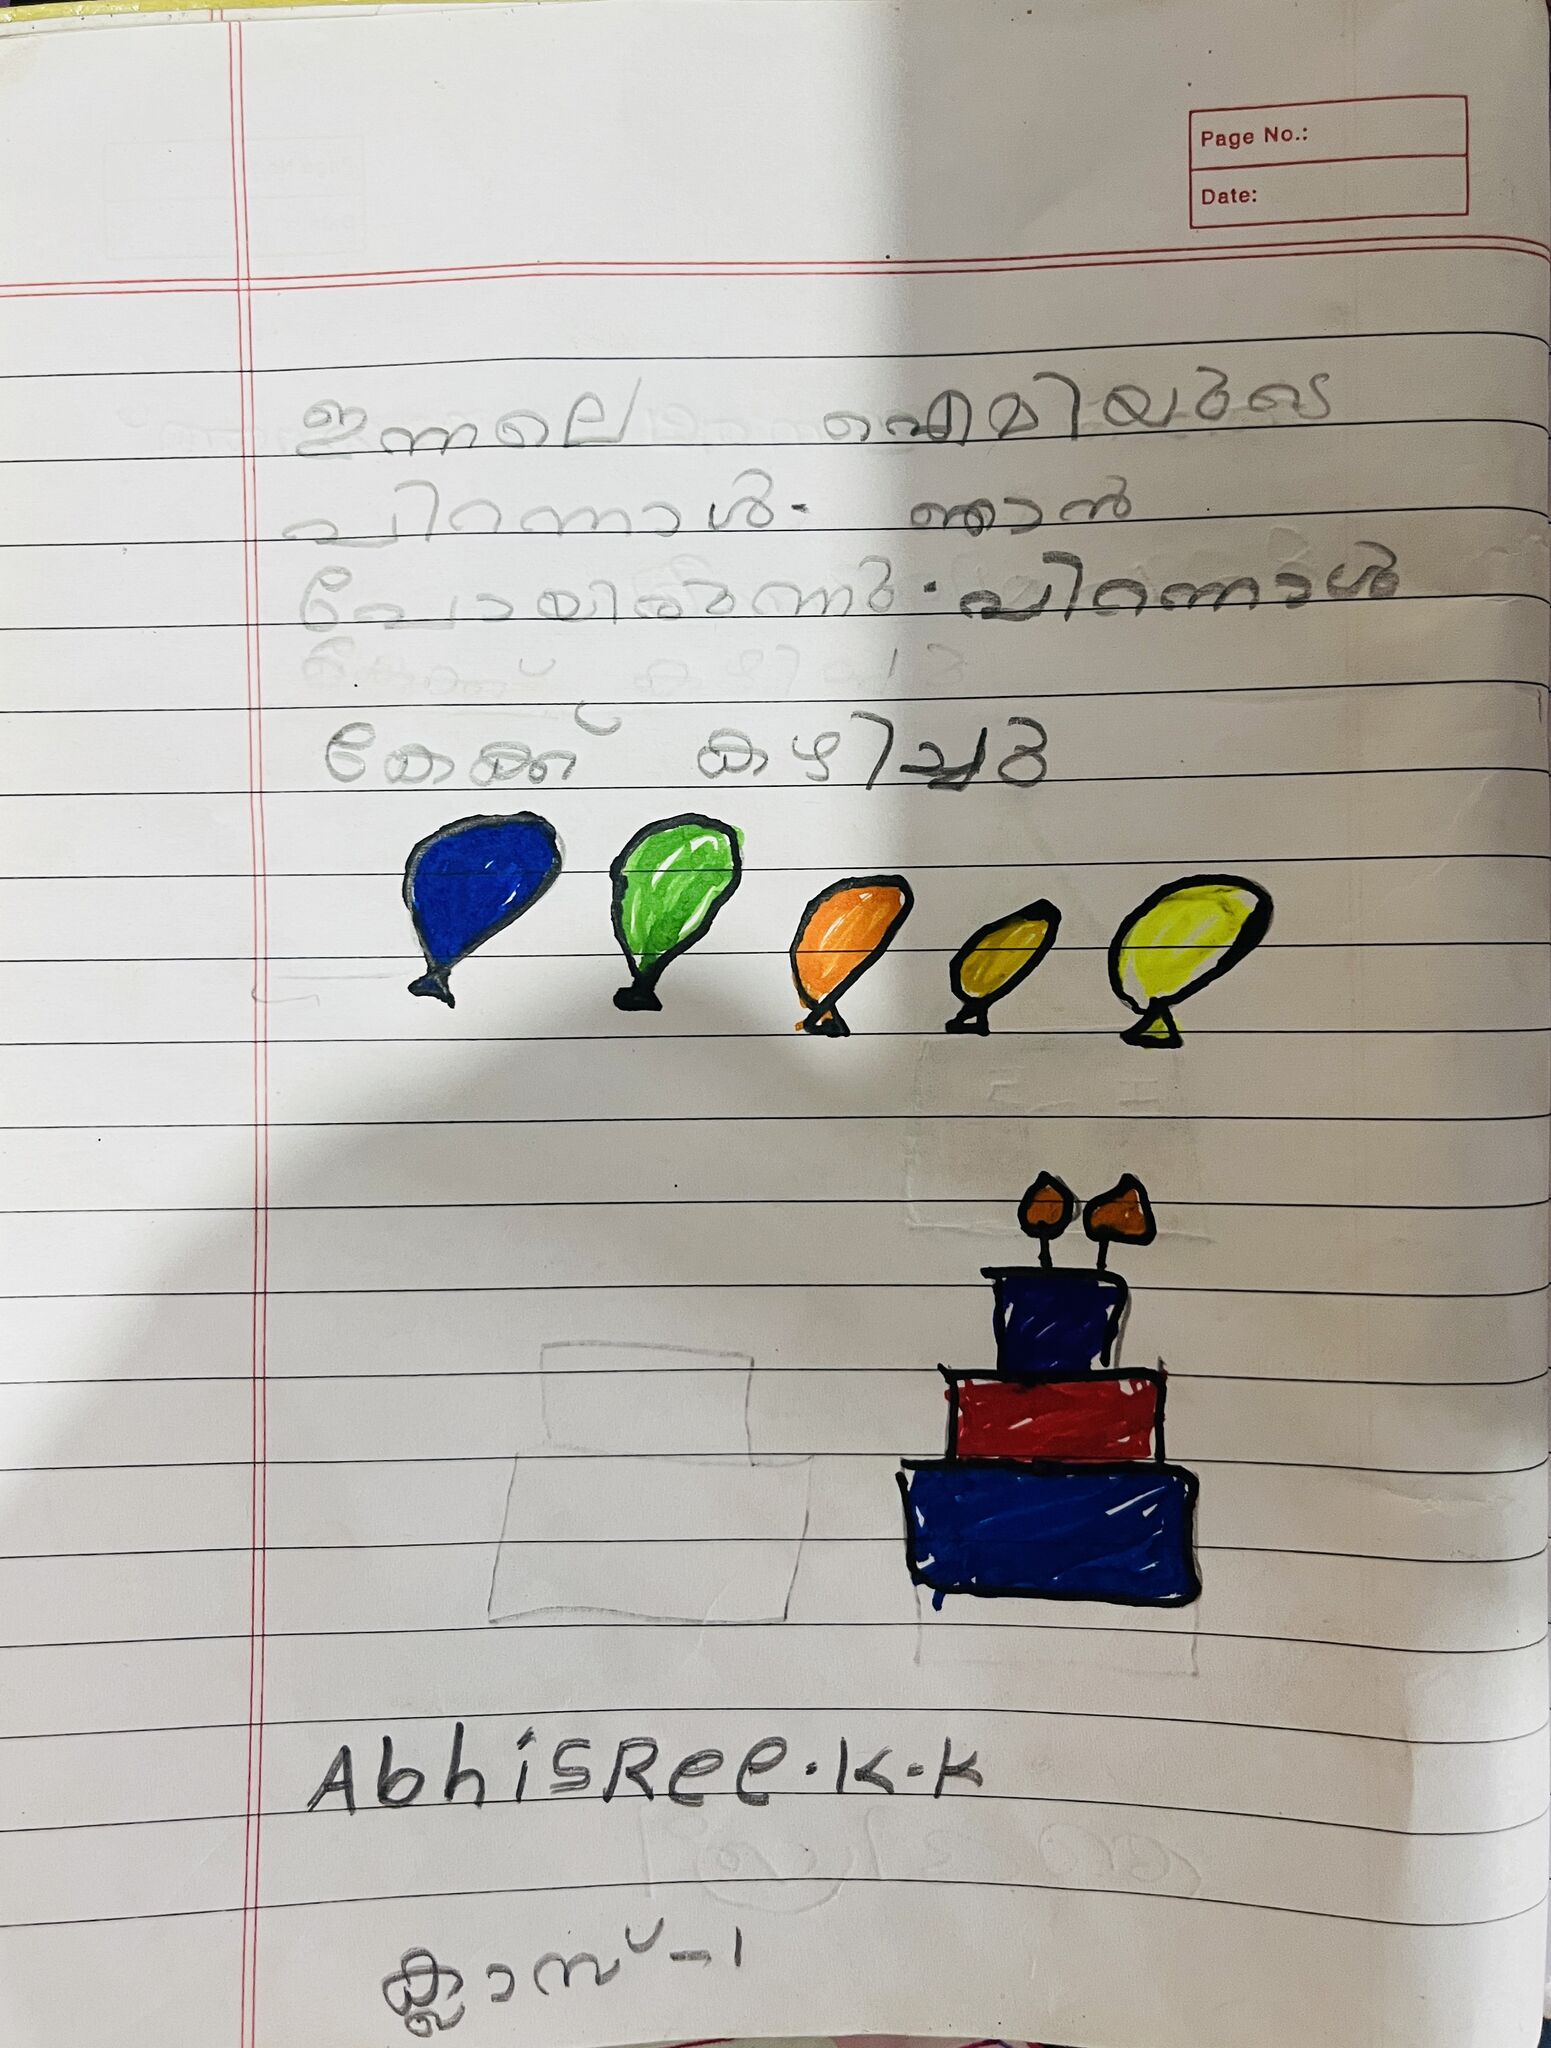 Page No.:
Date:
ഇന്നലെ ഐമിയുടെ
പിറന്നാൾ. ഞാൻ
പോയിരുന്നു. പിറന്നാൾ
കേക്ക് കഴിച്ചു
AbhisRee.K.K
ക്ലാസ് - 1